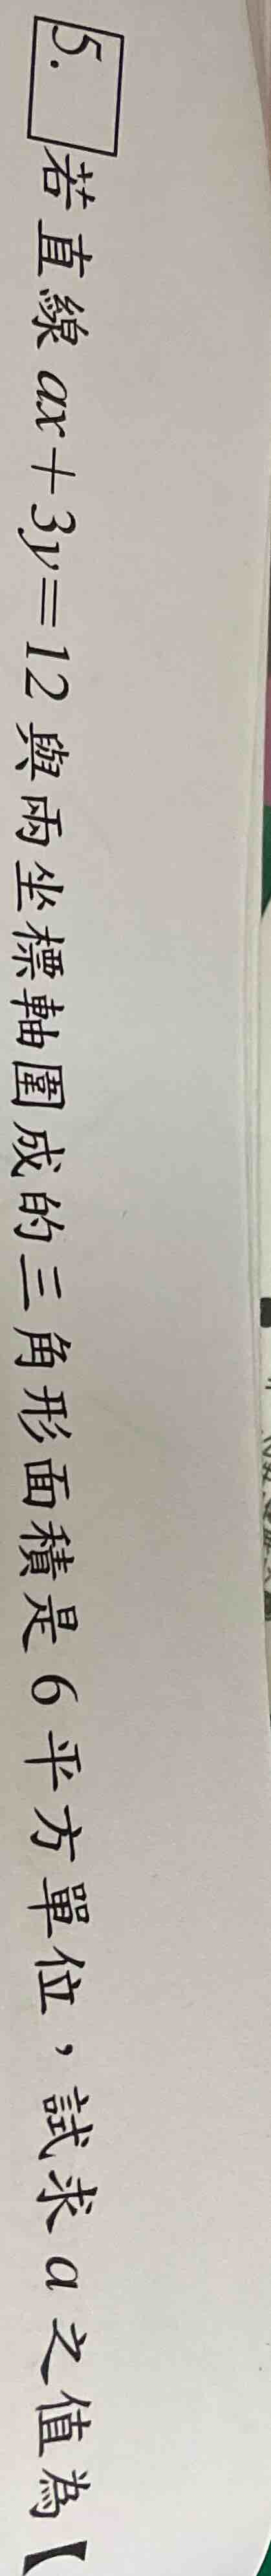 5. 若直線 ax+3y=12 與兩坐標軸圍成的三角形面積是 6 平方單位，試求 a 之值為【